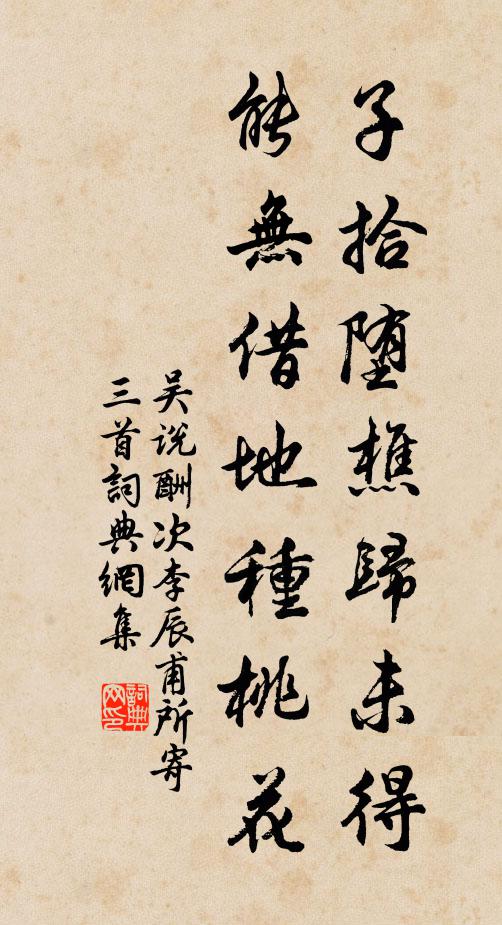 子拾堕樵歸未得
能無借地種桃花
吴说酬次李辰甫所寄
三首詞典網集
詞典
网印